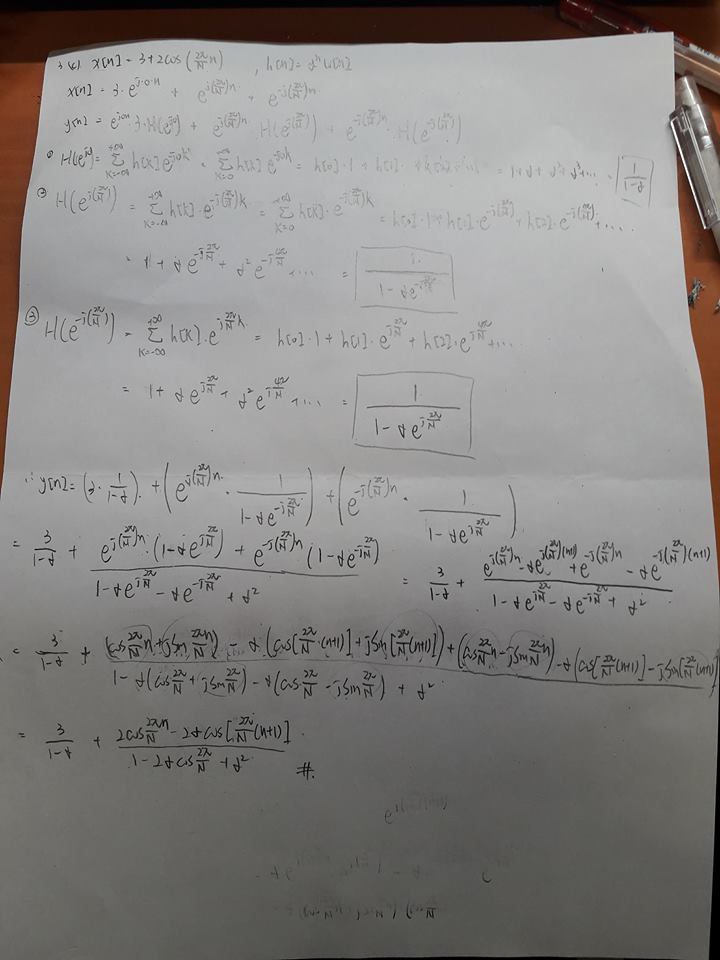 3. (c). x[n] = 3 + 2cos(2π/N n) , h[n] = α^n u[n]
x[n] = 3·e^{j·0·n} + e^{j(2π/N)n} + e^{-j(2π/N)n}
y[n] = e^{j0n}·3·H(e^{j0}) + e^{j(2π/N)n}·H(e^{j(2π/N)}) + e^{-j(2π/N)n}·H(e^{-j(2π/N)})
① H(e^{j0}) = Σ_{k=-∞}^{+∞} h[k] e^{-j0k} = Σ_{k=0}^{+∞} h[k] e^{-j0k} = h[0]·1 + h[1]·1 + h[2]·1 ... = 1 + α + α² + α³ + ... = 1/(1-α)
② H(e^{j(2π/N)}) = Σ_{k=-∞}^{+∞} h[k]·e^{-j(2π/N)k} = Σ_{k=0}^{+∞} h[k]·e^{-j(2π/N)k} = h[0]·1 + h[1]·e^{-j(2π/N)} + h[2]·e^{-j(4π/N)} + ...
= 1 + α e^{-j2π/N} + α² e^{-j4π/N} + ... = 1/(1 - αe^{-j2π/N})
③ H(e^{-j(2π/N)}) = Σ_{k=-∞}^{+∞} h[k]·e^{j2π/N k} = h[0]·1 + h[1]·e^{j2π/N} + h[2]·e^{j4π/N} + ...
= 1 + α e^{j2π/N} + α² e^{j4π/N} + ... = 1/(1 - αe^{j2π/N})
∴ y[n] = (3·1/(1-α)) + (e^{j(2π/N)n}·1/(1 - αe^{-j2π/N})) + (e^{-j(2π/N)n}·1/(1 - αe^{j2π/N}))
= 3/(1-α) + (e^{j(2π/N)n}·(1 - αe^{j2π/N}) + e^{-j(2π/N)n}·(1 - αe^{-j2π/N}))/(1 - αe^{j2π/N} - αe^{-j2π/N} + α²) = 3/(1-α) + (e^{j(2π/N)n} - αe^{j(2π/N)(n+1)} + e^{-j(2π/N)n} - αe^{-j(2π/N)(n+1)})/(1 - αe^{j2π/N} - αe^{-j2π/N} + α²)
= 3/(1-α) + ((cos2π/N n + jsin2π/N n) - α·(cos[2π/N·(n+1)] + jsin[2π/N(n+1)]) + (cos2π/N n - jsin2π/N n) - α(cos[2π/N(n+1)] - jsin[2π/N(n+1)]))/(1 - α(cos2π/N + jsin2π/N) - α(cos2π/N - jsin2π/N) + α²)
= 3/(1-α) + (2cos2π/N n - 2αcos[2π/N(n+1)])/(1 - 2αcos2π/N + α²) #.